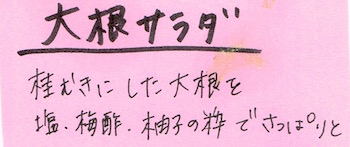 大根サラダ
桂むきにした大根を
塩・梅酢・柚子の粋でさっぱりと